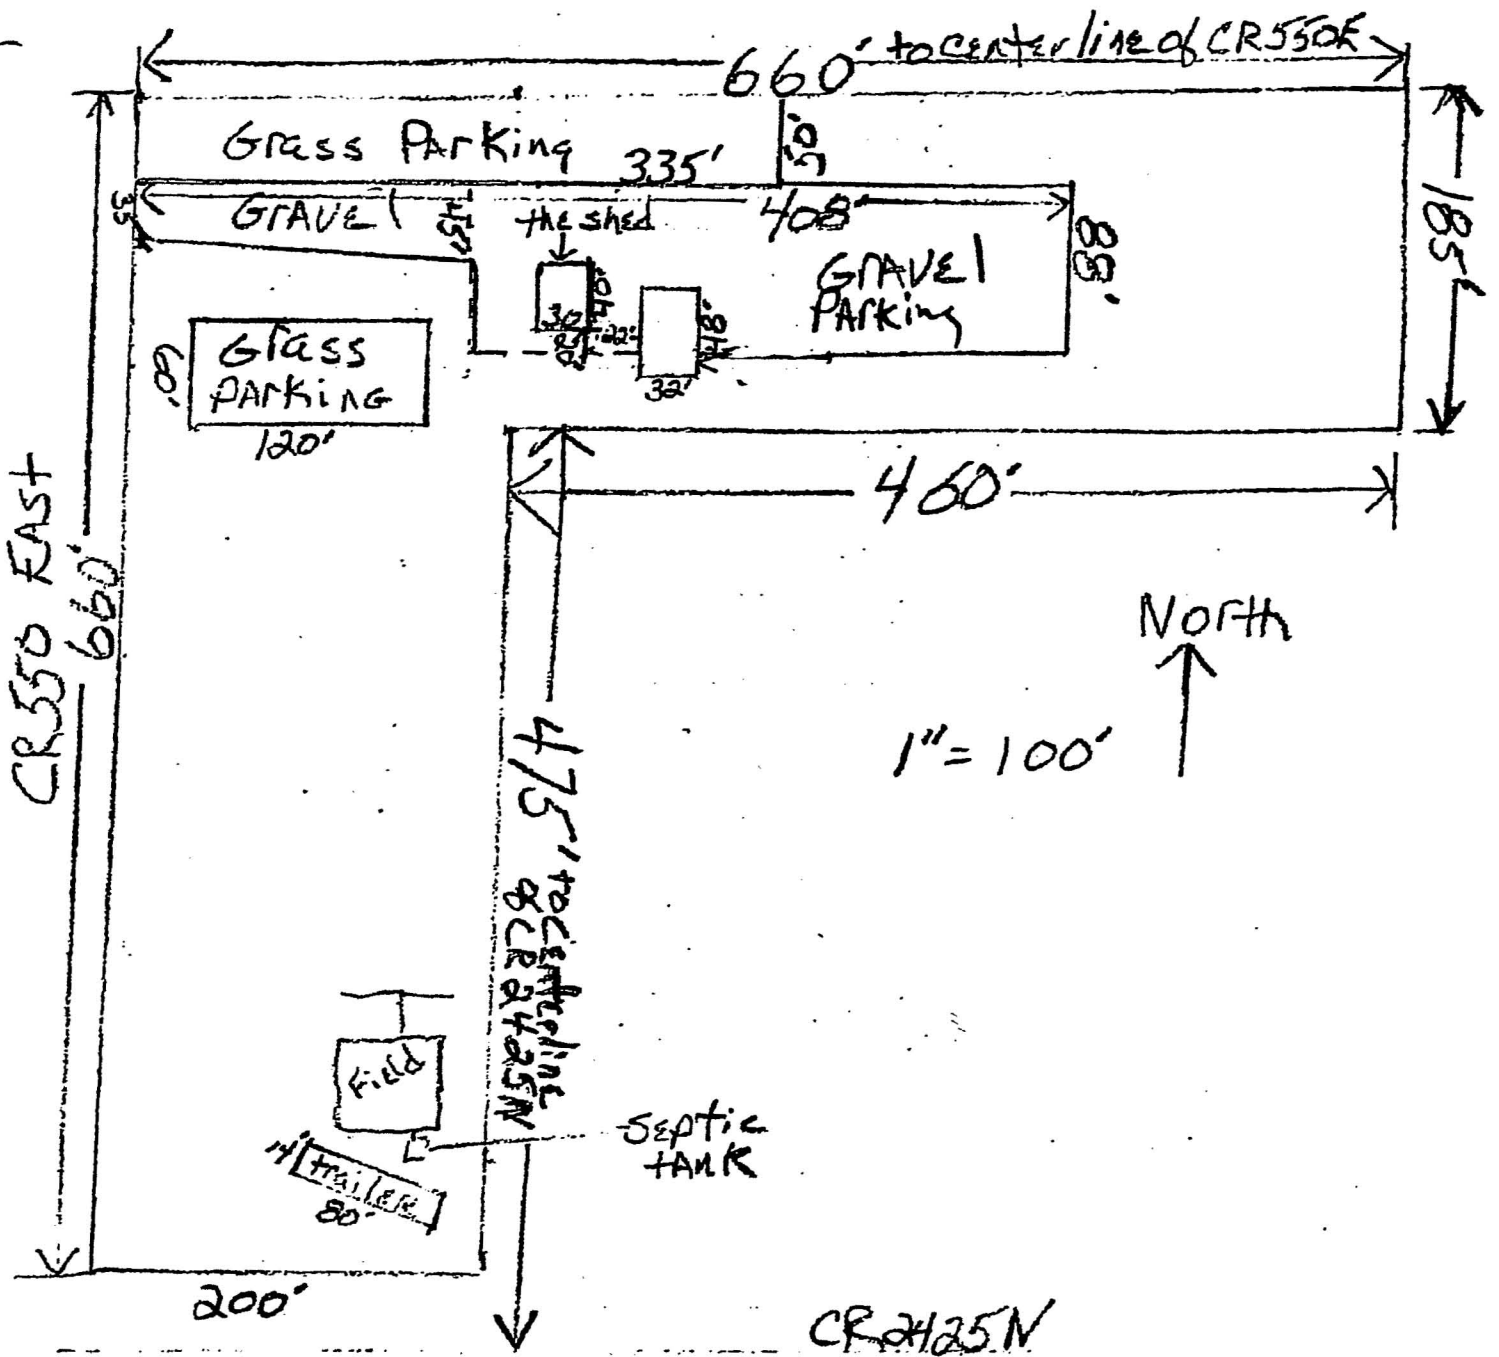 660' to centerline of CR550E
Grass Parking
50'
335'
185'
35'
GRAVEl
45'
the shed
408'
88'
GRAVEl
PARking
30
40'
22'
48'
32'
Grass
PARKiNG
60'
120'
460'
CR550 EAST
660'
North
1" = 100'
475' to centerline
of CR2425N
Field
Septic
tANK
14'
trailer
80'
200'
CR2425N